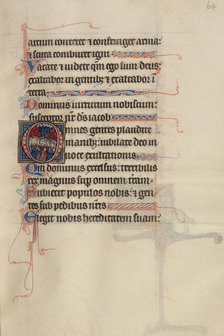 64
arcum conteret et confringet arma:
et scuta comburet igni
Vacate et uidete qm ego sum deus:
exaltabor in gentib; et exaltabor i
terra.
Dominus uirtutum nobiscum:
susceptor nr deus iacob
Omnes gentes plaudite
manib; iubilate deo in
uoce exultationis.
Qm dominus excelsus: terribilis
rex magnus sup omnem terram.
Subiecit populos nobis: et gen
tes sub pedibus nris
Elegit nobis hereditatem suam: